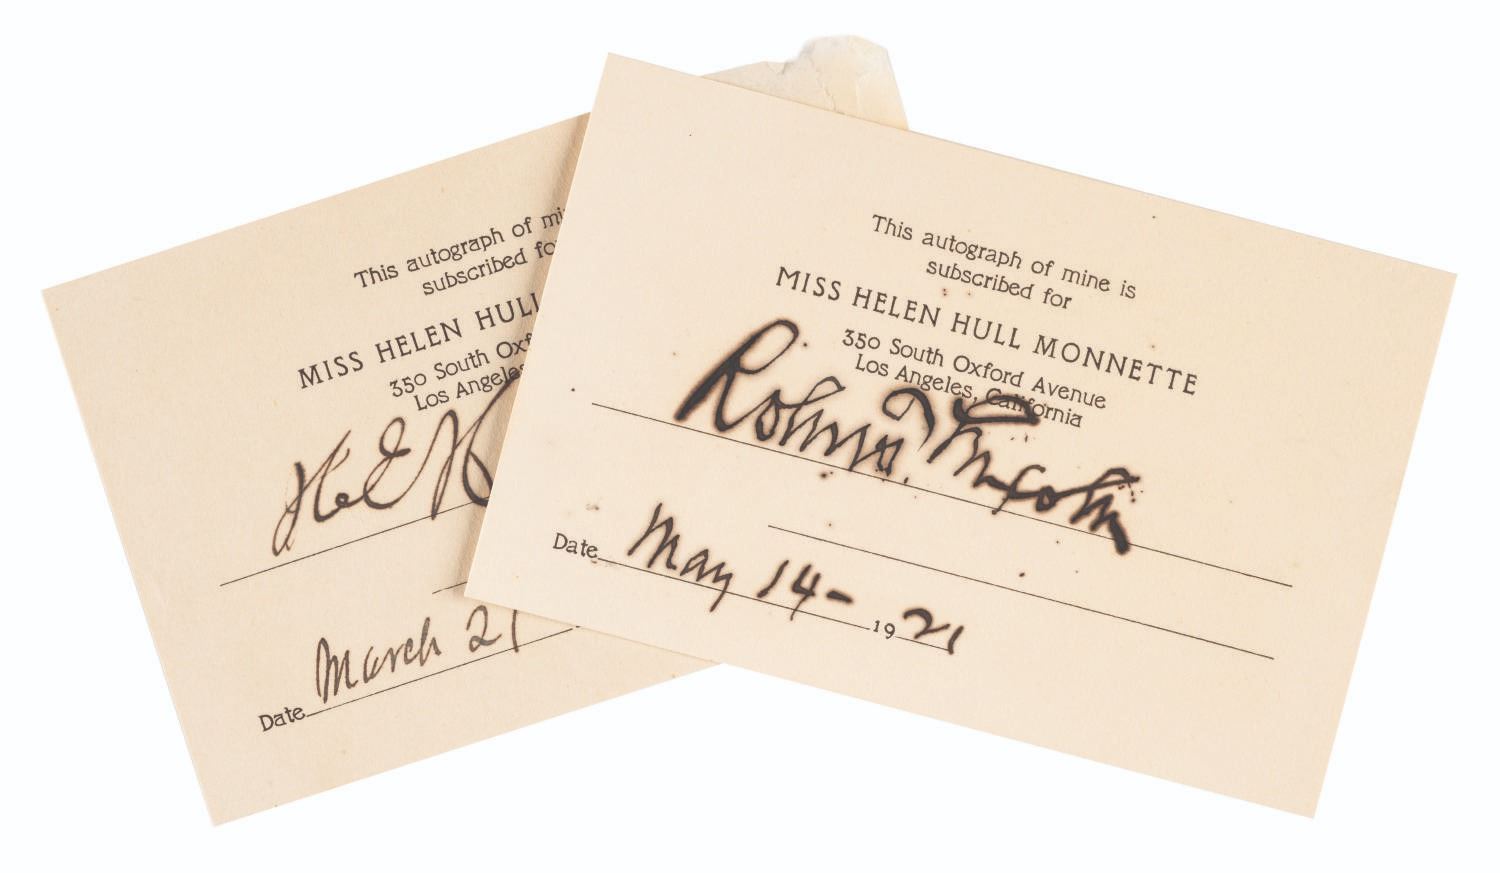 This autograph of mi
subscribed fo
MISS HELEN HULL
350 South Oxf
Los Angeles
Date March 21
This autograph of mine is
subscribed for
MISS HELEN HULL MONNETTE
350 South Oxford Avenue
Los Angeles, California
Robert T Lincoln
Date May 14- 1921